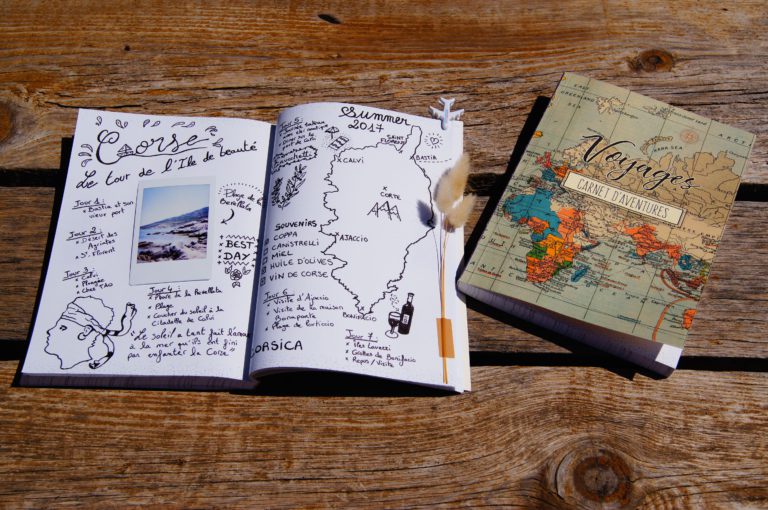 Corse
Le tour de l'Ile de beauté
Jour 1:
x Bastia et son
vieux port
Jour 2:
x Désert des
Agriates
x St Florent
Plage de la
BEST
DAY
Jour 4:
x Plage
x Coucher du soleil à la
"Le soleil a tant fait l'amour
à la mer qu'ils ont fini
par enfanter la Corse"
Summer
2017
Jour 5:
SAINT
FLORENT
BASTIA
x CALVI
x CORTE
x AJACCIO
BONIFACIO
SOUVENIRS
COPPA
CANISTRELLI
MIEL
HUILE D'OLIVES
VIN DE CORSE
Jour 6
x Visite d'Ajaccio
x Visite de la maison
Bonaparte
x Plage de Porticcio
Jour 7
x Iles Lavezzi
x Grottes de Bonifacio
x Repos / Visite
ORSICA
Voyages
CARNET D'AVENTURES